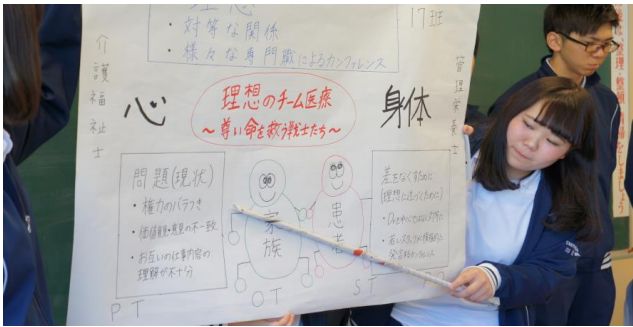 理想
・対等な関係
・様々な専門職によるカンファレンス
17班
介護福祉士
管理栄養士
心
理想のチーム医療
～尊い命を救う戦士たち～
身体
問題(現状)
・権力のバラつき
・価値観・意見の不一致
・お互いの仕事内容の
理解が不十分
家族
患者
差をなくすために
(理想に近づくために)
PT
OT
ST
整理・整頓・清掃をしましょう